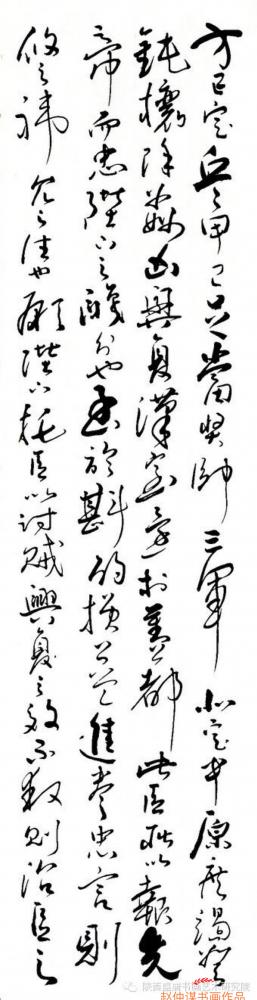 方已定兵甲已足當獎帥三軍北定中原庶竭駑
鈍攘除姦凶興復漢室還於舊都此臣所以報先
帝而忠陛下之職分也至於斟酌損益進盡忠言則
攸之禕允之任也願陛下託臣以討賊興復之效不效則治臣之
陕西盛唐书画艺术研究院
赵仲谋书画作品